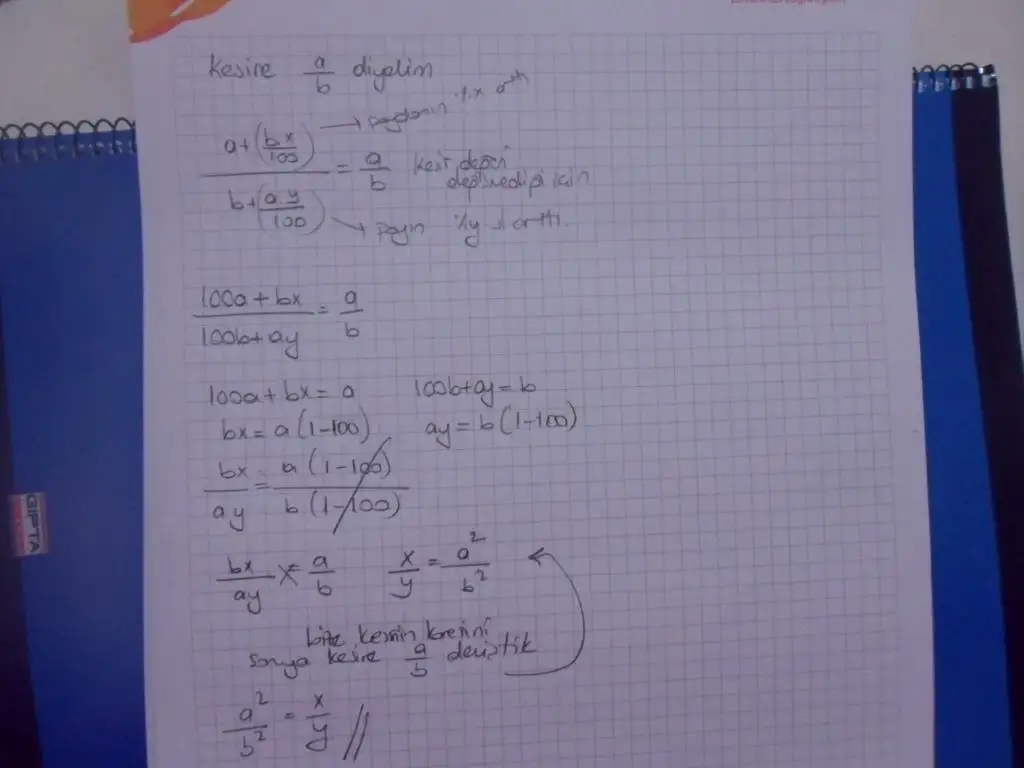 Kesire a/b diyelim
→ paydanın %x arttı
a+(bx/100) / b+(a.y/100) = a/b kesir değeri
değişmediği için
→ payın %y si arttı.
100a+bx / 100b+ay = a/b
100a+bx=a 100b+ay=b
bx=a(1-100) ay=b(1-100)
bx/ay = a(1-100)/b(1-100)
bx/ay = a/b x/y = a²/b²
bize kesrin karesini
soruyor kesire a/b demiştik
a²/b² = x/y //
GIPTA